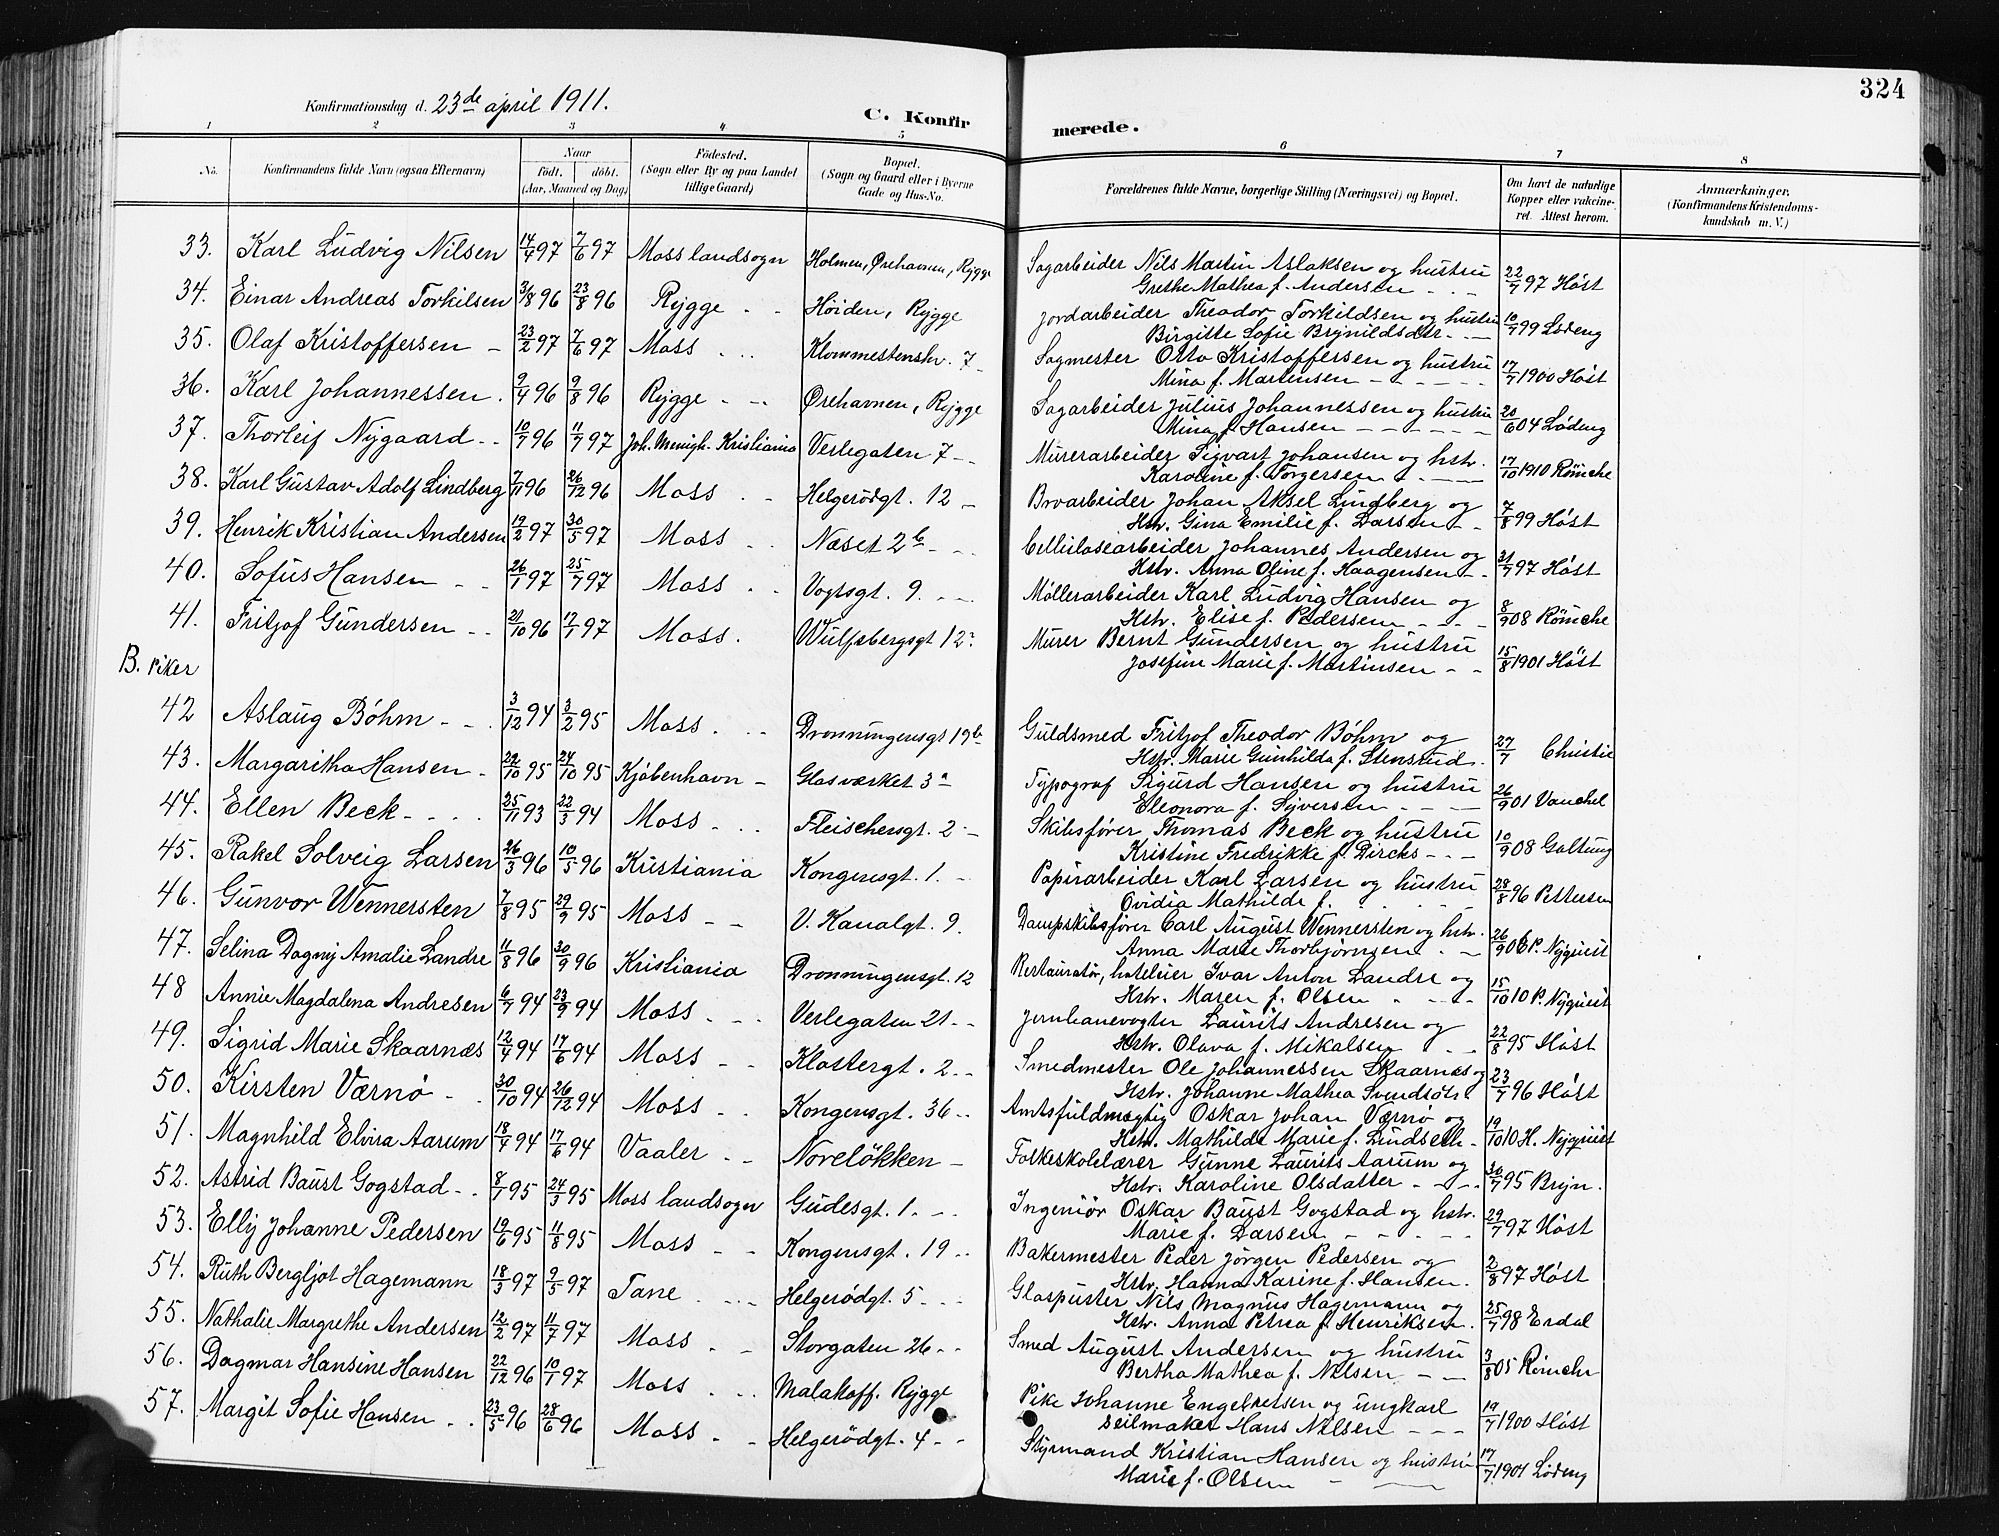 324
Konfirmationsdag d. 23de april 1911.
C. Konfirmerede.
1 2 3 4 5 6 7 8
No. Konfirmandens fulde Navn (ogsaa Efternavn) Naar født. døbt. (Aar, Maaned og Dag) Fødested. (Sogn eller By og paa Landet tillige Gaard) Bopæl. (Sogn og Gaard eller i Byerne Gade og Hus-No. Forældrenes fulde Navne, borgerlige Stilling (Næringsvei) og Bopæl. Om havt de naturlige Kopper eller vaccineret. Attest herom. Anmærkninger. (Konfirmandens Kristendomskundskab m. V.)
33. Karl Ludvig Nilsen 14/4 97 7/6 97 Moss landsogn Holmen, Ørehavnen, Rygge Sagarbeider Nils Martin Aslaksen og hustru Grethe Mathea f. Andersen 22/7 97 Høst
34. Einar Andreas Torkilsen 3/8 96 23/8 96 Rygge Høiden, Rygge Jordarbeider Theodor Torkildsen og hustru Birgitte Sofie Brynildsdtr. 10/7 99 Lødeng
35. Olaf Kristoffersen 23/2 97 7/6 97 Moss Klommestenskr. 7 Sagmester Otto Kristoffersen og hustru Mina f. Martinsen 17/7 1900 Høst
36. Karl Johannessen 9/4 96 9/8 96 Rygge Ørehavnen, Rygge Sagarbeider Julius Johannessen og hustru Mina f. Hansen 20/6 04 Lødeng
37. Thorleif Nygaard 10/7 96 11/7 97 Joh. Menigh. Kristiania Verlegaten 7 Murerarbeider Sigvart Johansen og hstr. Karoline f. Torgersen 17/10 1910 Rømcke
38. Karl Gustav Adolf Lindberg 7/11 96 26/12 96 Moss Helgerødgt. 12 Brvarbeider Johan Aksel Lindberg og Hstr. Gina Emilie f. Larsen 7/8 99 Høst
39. Henrik Kristian Andersen 19/2 97 30/5 97 Moss Næset 2b Celluloséarbeider Johannes Andersen og Hstr. Anna Oline f. Haagensen 31/7 97 Høst
40. Sofus Hansen 26/1 97 25/7 97 Moss Vogtsgt. 9. Møllerarbeider Karl Ludvig Hansen og Hstr. Elise f. Pedersen 8/9 08 Rømcke
41. Fritjof Gundersen 21/10 96 17/1 97 Moss. Wulfsbergsgt 12 Murer Bernt Gundersen og hustru Josefine Marie f. Martinsen 15/8 1901 Høst
B. piker
42 Aslaug Bøhm 3/12 94 3/2 95 Moss Dronningensgt 19b Guldsmed Fritjof Theodor Bøhm og Hstr. Marie Gunhilda f. Stensrud 27/7 Christie
43. Margaritha Hansen 22/10 95 24/10 95 Kjøbenhavn Glasværket 3a Typograf Sigurd Hansen og hustru Eleonora f. Syversen 26/9 01 Vauchel
44. Ellen Beck 25/11 93 22/3 94 Moss Fleischersgt. 2 Skibsfører Thomas Beck og hustru Kristine Fredrikke f. Dircks 10/9 08 Galtung
45. Rakel Solveig Larsen 26/3 96 10/5 96 Kristiania Kongensgt. 1. Papirarbeider Karl Larsen og hustru Ovidia Mathilde f. 28/8 96 Pettersen
46. Gunvor Wennersten 7/8 95 29/9 95 Moss V. Kanalgt. 9. Dampskibsfører Carl August Wennersten og hstr. Anna Marie Thorbjørnsen 26/9 06 P. Nyquist
47. Selina Dagny Amalie Landre 11/8 96 30/9 96 Kristiania Dronningensgt. 12 Restauratør, hoteleier Ivar Anton Landre og Hstr. Maren f. Olsen 15/10 10 P. Nyquist
48 Annie Magdalena Andresen 6/7 94 23/9 94 Moss Verlegaten 21 Jernbanevogter Laurits Andresen og Hstr. Olava f. Mikalsen 22/8 95 Høst
49. Sigrid Marie Skaarnæs 12/4 94 17/6 94 Moss Klostergt. 2 Smedmester Ole Johannessen Skaarnæs og Hstr. Johanne Mathea Svendsdtr. 23/7 96 Høst
50. Kirsten Værnø 30/10 94 26/12 94 Moss Kongensgt. 36 Amtsfuldmægtig Oskar Johan Værnø og Hstr. Mathilde Marie f. Lindseth 19/10 10 H. Nyquist
51. Magnhild Elvira Aarum 18/4 94 17/6 94 Vaaler Noreløkken Folkeskolelærer Gunne Laurits Aarum og Hstr. Karoline Olsdatter 30/7 95 Bryn.
52. Astrid Baust Gogstad 8/1 95 24/3 95 Moss landsogn Gudesgt. 1. Ingeniør Oskar Baust Gogstad og hstr. Marie f. Larsen 29/7 97 Høst
53. Elly Johanne Pedersen 19/6 95 11/8 95 Moss Kongensgt. 19 Bakermester Peder Jørgen Pedersen og Hstr. Hanna Karine f. Hansen. 2/8 97 Høst
54. Ruth Bergljot Hagemann 18/3 97 9/5 97 Tane Helgerødgt. 5 Glaspuster Nils Magnus Hagemann og Hstr. Anna Petrea f. Henriksen. 25/7 98 Erdal
55. Nathalie Margrethe Andersen 12/2 97 11/7 97 Moss Storgaten 26 Smed August Andersen og hustru Bertha Mathea f. Nilsen 3/8 05 Rømcke
56. Dagmar Hansine Hansen 22/12 96 10/1 97 Moss Malakoff. Rygge Pike Johanne Engebretsen og ungkarl seilmaker Hans Nilsen 19/7 1900 Høst
57. Margit Sofie Hansen 23/5 96 28/6 96 Moss Helgerødgt. 4 Styrmand Kristian Hansen og hustru Marie f. Olsen 17/7 1901 Lødeng